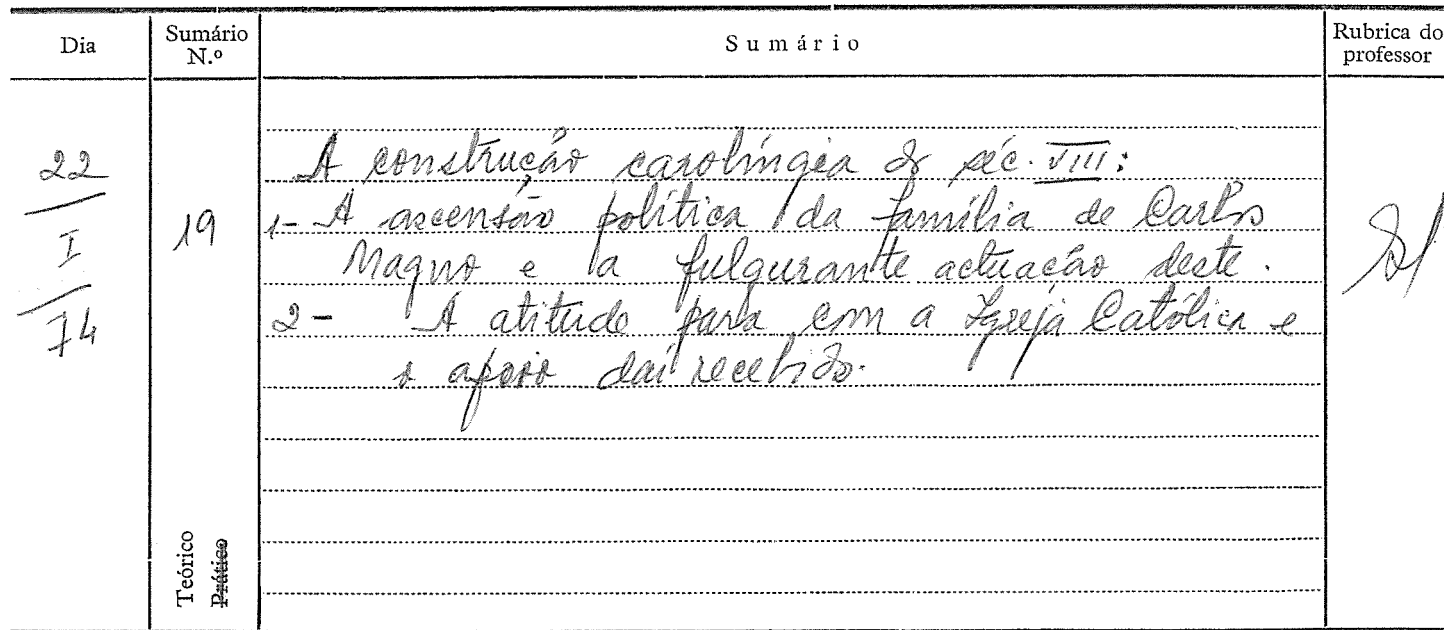 Dia
Sumário
N.º
Sumário
Rubrica do
professor
22
I
74
19
A construção carolíngia do séc. VIII:
1- A ascensão política da família de Carlos
Magno e a fulgurante actuação deste.
2- A atitude para com a Igreja Católica e
o apoio daí recebido.
Teórico
Prático